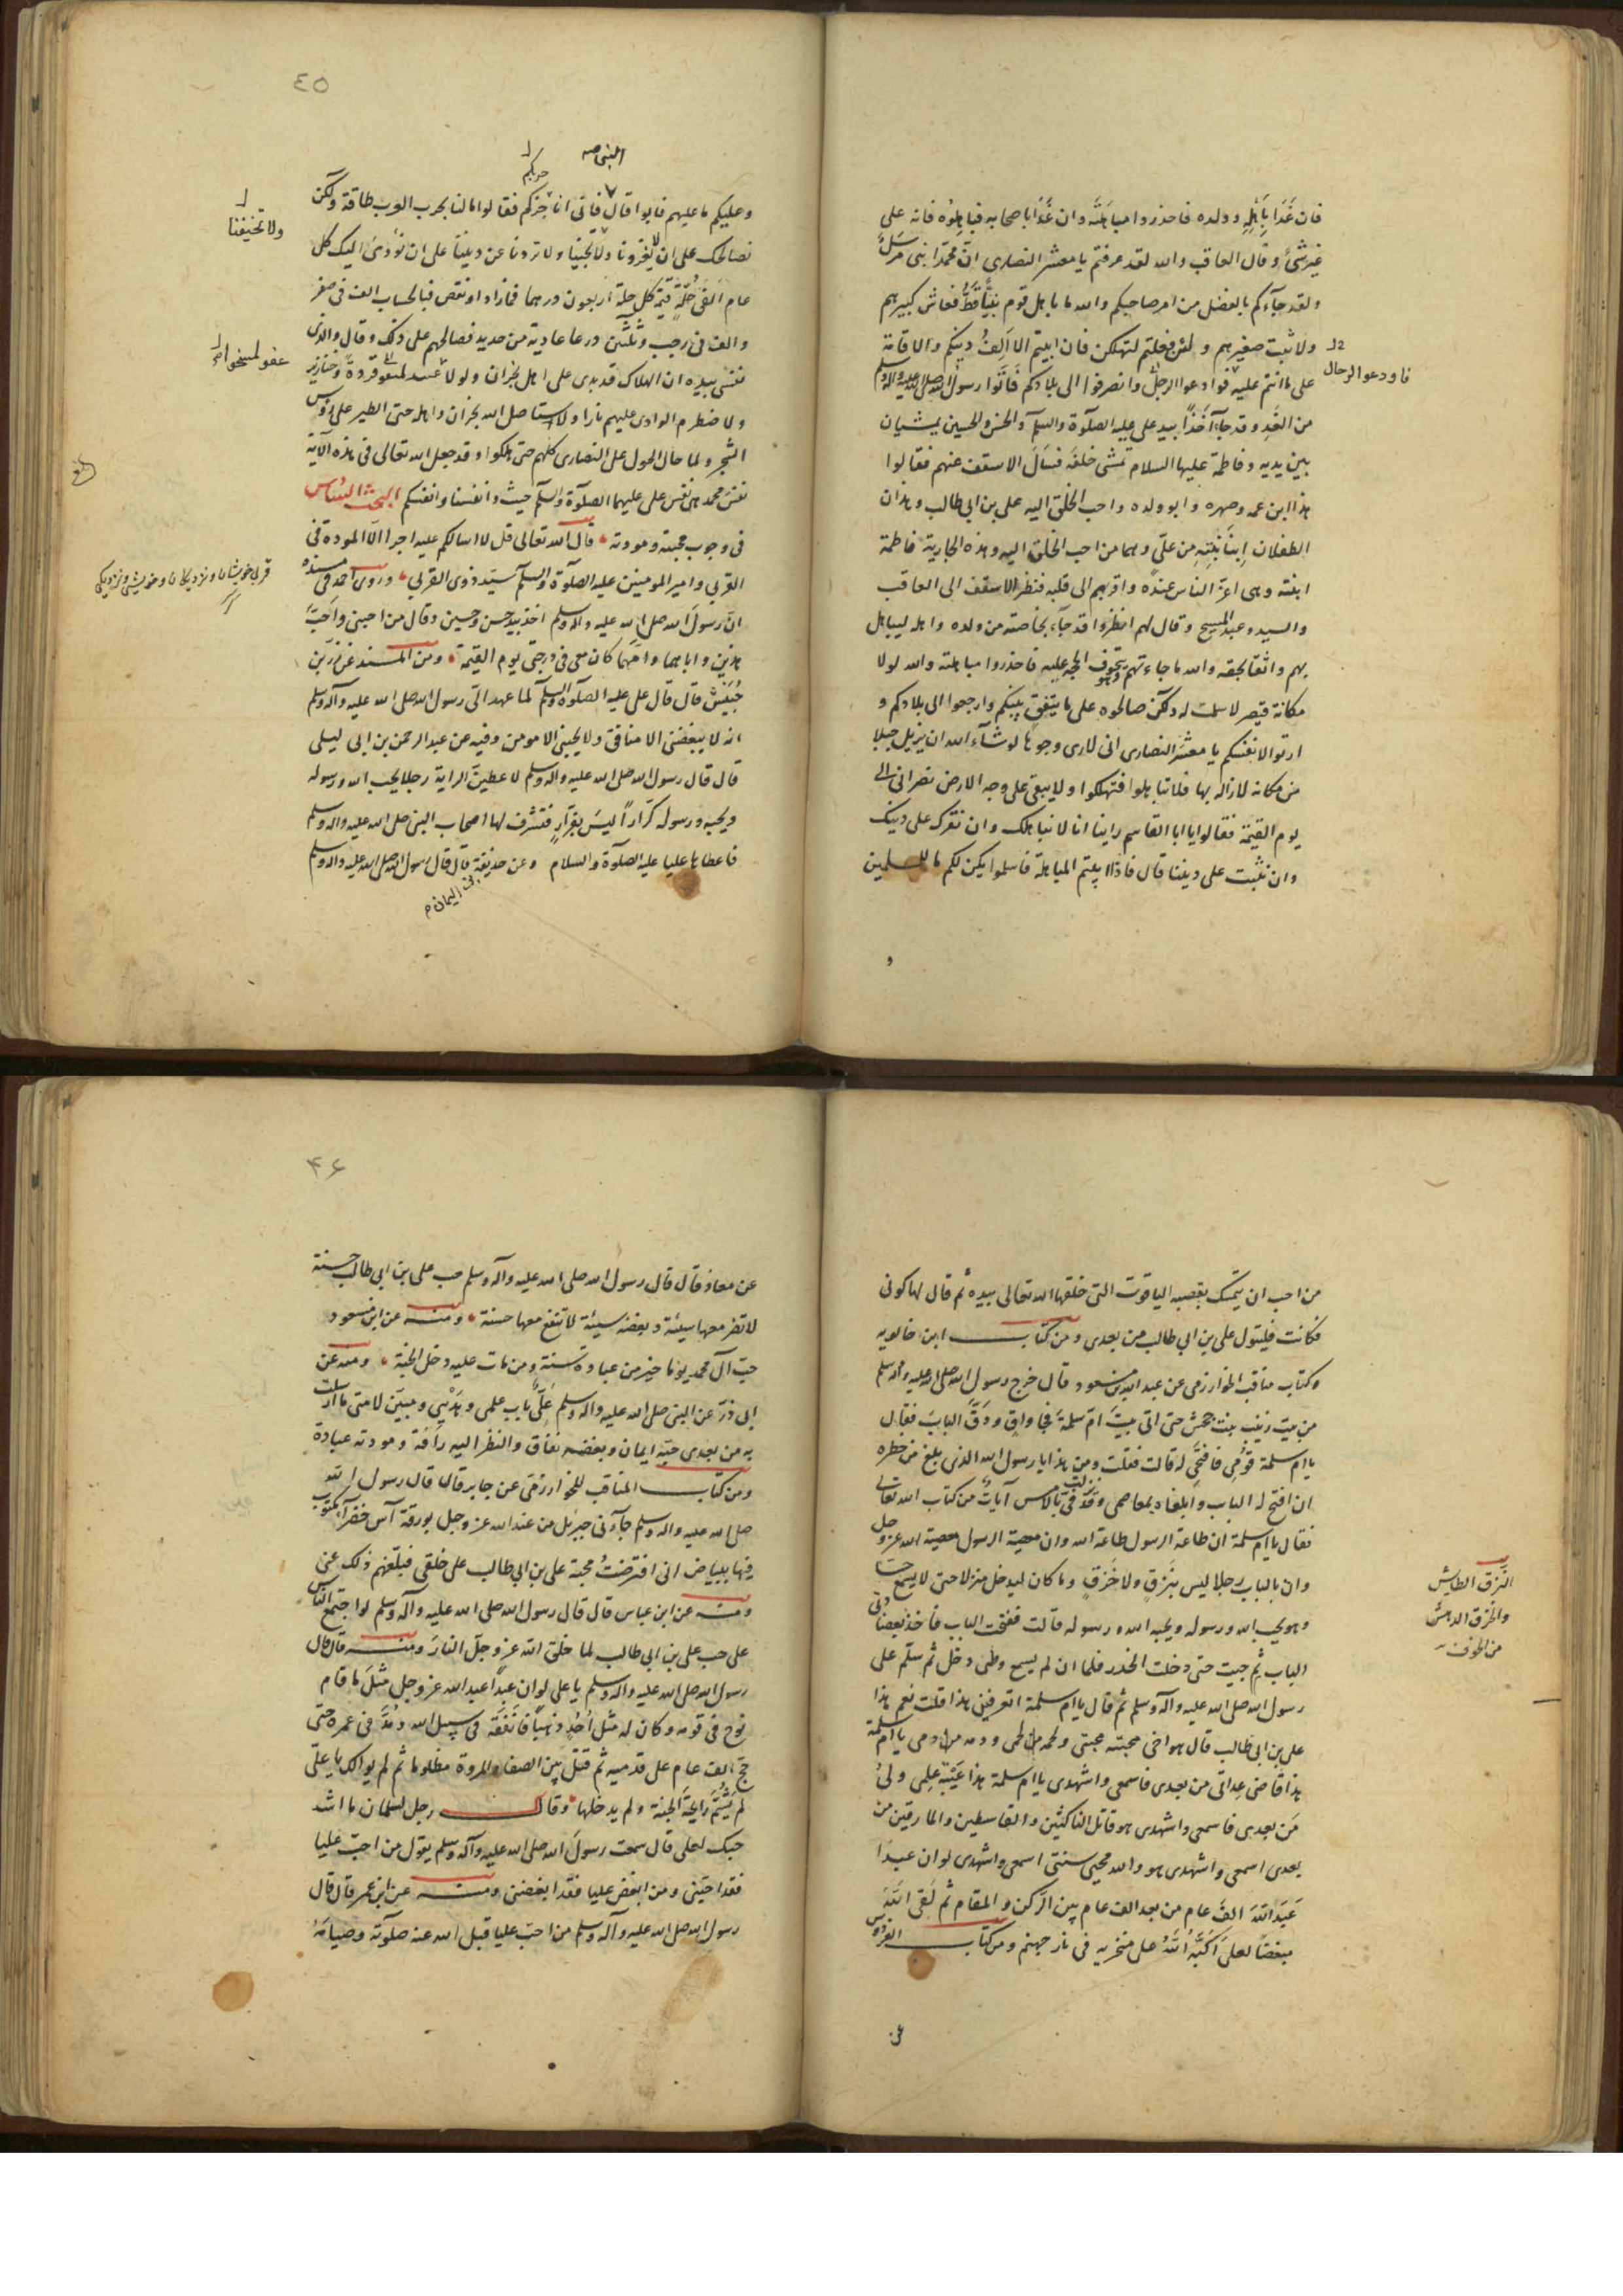 فان غَدَا بِاَهْلِهِ وولده فاحذروا مباهلته وان غَدَا باصحابه فباهلوه فانه على
غير شئ وقال العاقب والله لقد عرفتم يا معشر النصارى ان محمدا نبى مرسل
ولقد جاءكم بالفصل من امر صاحبكم والله ما باهل قوم نبيًّا قطّ فعاش كبيرهم
ولا ثبت صغيرهم ولئن فعلتم لتهلكن فان ابيتم الا اَلِفَ دينكم والاقامة
فاودعوا الرجال
على ما انتم عليه فوادعوا الرجل وانصرفوا الى بلادكم فَاَتَوا رسول الله صلى الله عليه وآله وسلم
من الغد وقد جاء آخذًا بيد على عليه الصلوة والسلم والحسن والحسين يمشيان
بين يديه وفاطمة عليها السلام تمشى خلفه فسال الاسقف عنهم فقالوا
هذا ابن عمه وصهره وابو ولده واحب الخلق اليه على بن ابى طالب وهذان
الطفلان اِبنَا بِنْتِهِ من علىٍّ وهما من احب الخلق اليه وهذه الجارية فاطمة
ابنته وهى اعز الناس عنده واقربهم الى قلبه فنظر الاسقف الى العاقب
والسيد وعبد المسيح وقال لهم انظروا قد جاء بخاصته من ولده واهله ليباهل
بهم واثقا بحقه والله ما جاء بهم وهو يتخوف الحجة عليه فاحذروا مباهلته والله لولا
مكانة قيصر لاسلمت له ولكن صالحوه على ما يتفق بينكم وارجعوا الى بلادكم و
ارتوا لانفسكم يا معشر النصارى انى لارى وجوها لو شاء الله ان يزيل جبلا
من مكانه لازاله بها فلا تباهلوا فتهلكوا ولا يبقى على وجه الارض نصرانى الى
يوم القيمة فقالوا يا ابا القاسم راينا ان لا نباهلك وان نقرك على دينك
وان نثبت على ديننا قال فاذا ابيتم المباهلة فاسلموا يكن لكم ما للمسلمين
و
٤٥
النبى صه
حربكم
وعليكم ما عليهم فابوا قال فانى اناجزكم فقالوا ما لنا بحرب العرب طاقة ولكن
ولا تخيفنا
نصالحك على ان لا تغزونا ولا تجبينا ولا تردنا عن ديننا على ان نؤدى اليك كل
عام الفى حلّة قيمة كل حلة اربعون درهما فما زاد او نقص فبالحساب الف فى صفر
والف فى رجب وثلثين درعا عادية من حديد فصالحهم على ذلك وقال والذى
نفسى بيده ان الهلاك قد تدى على اهل نجران ولو لاعنوا لمسخوا قردة وخنازير
ولاضطرم الوادى عليهم نارا ولاستاصل الله نجران واهله حتى الطير على رؤس
الشجر ولما حال الحول على النصارى كلهم حتى هلكوا وقد جعل الله تعالى فى هذه الآية
نفس محمد هى نفس على عليهما الصلوة والسلم حيث وانفسنا وانفسكم البحث السادس
فى وجوب محبته ومودته قال الله تعالى قل لا اسالكم عليه اجرا الا المودة فى
القربى وامير المومنين عليه الصلوة والسلم سيد ذوى القربى وروى احمد فى مسنده
ان رسول الله صلى الله عليه وآله وسلم اخذ بيد حسن وحسين وقال من احبنى واحبّ
هذين واباهما وامّهما كان معى فى درجتى يوم القيمة ومن المسند عن زر بن
حُبَيش قال قال على عليه الصلوة والسلم لما عهد الىّ رسول الله صلى الله عليه وآله وسلم
انه لا يبغضنى الا منافق ولا يحبنى الا مومن وفيه عن عبد الرحمن بن ابى ليلى
قال قال رسول الله صلى الله عليه وآله وسلم لاعطين الراية رجلا يحب الله ورسوله
ويحبه ورسوله كرّاراً ليس بفرّارٍ فتشرف لها اصحاب النبى صلى الله عليه وآله وسلم
فاعطاها عليا عليه الصلوة والسلام وعن حذيفة قال قال رسول الله صلى الله عليه وآله وسلم
بن اليمان م
من احب ان يتمسك بقصبه الياقوت التى خلقها الله تعالى بيده ثم قال لها كونى
فكانت فليتول على بن ابى طالب من بعدى ومن كتاب ابن خالويه
وكتاب مناقب الخوارزمى عن عبد الله بن مسعود قال خرج رسول الله صلى الله عليه وآله وسلم
من بيت زينب بنت جحش حتى اتى بيت امّ سلمة فجا داقٍ ودَقّ الباب فقال
يا ام سلمة قومى فافتحى له قالت فقلت ومن هذا يا رسول الله الذى بلغ من خطره
ان افتح له الباب وابلغاه بمعاصمى وقد نزلت فىّ بالامس آيات من كتاب الله تعالى
فقال يا ام سلمة ان طاعة الرسول طاعة الله وان معصية الرسول معصية الله عز وجل
وان بالباب رجلا ليس بنَزِقٍ ولا خَرِقٍ وما كان ليدخل منزلا حتى لا يسمع حسا
النزق الطايش
والخرق الدهش
من الخوف
وهو يحب الله ورسوله ويحبه الله ورسوله قالت ففتحت الباب فاخذ بعضادتى
الباب ثم جيت حتى دخلت الخدر فلما ان لم يسمع وطئ دخل ثم سلّم على
رسول الله صلى الله عليه وآله وسلم ثم قال يا ام سلمة اتعرفين هذا قلت نعم هذا
على بن ابى طالب قال هو اخى محبته محبتى ولحمه من لحمى ودمه من دمى يا ام سلمة
هذا قاضى عِداتى من بعدى فاسمعى واشهدى يا ام سلمة هذا عَيْبَةُ علمى ولىُّ
مَن بعدى فاسمعى واشهدى هو قاتل الناكثين والقاسطين والمارقين من
بعدى اسمعى واشهدى هو والله محيى سنتى اسمعى واشهدى لو ان عبدا
عَبَدَ اللهَ الفَ عام من بعد الف عام بين الركن والمقام ثم لقى اللهَ
مبغضاً لعلى اكبّهُ اللهُ على منخريه فى نار جهنم ومن كتاب الفردوس
عن
۴۶
عن معاذ قال قال رسول الله صلى الله عليه وآله وسلم حب على بن ابى طالب حسنة
لا تضر معها سيئة وبغضه سيئة لا تنفع معها حسنة ومنه عن ابن مسعود
حبّ آل محمد يوما خير من عبادة سنة ومن مات عليه دخل الجنة ومنه عن
ابى ذرّ عن النبى صلى الله عليه وآله وسلم علىٌّ باب علمى وهَدْيى ومبيّن لامتى ما ارسلت
به من بعدى حبّه ايمان وبغضه نفاق والنظر اليه رأفة ومودته عبادة
ومن كتاب المناقب للخوارزمى عن جابر قال قال رسول الله
صلى الله عليه وآله وسلم جآءنى جبرئل من عند الله عز وجل بورقة آس خضرآء مكتوب
فيها ببياض انى افترضتُ محبة على بن ابى طالب على خلقى فبلّغهم ذلك عنى
ومنه عن ابن عباس قال قال رسول الله صلى الله عليه وآله وسلم لو اجتمع الناس
على حب على بن ابى طالب لما خلق الله عز وجلّ النارَ ومنه قال قال
رسول الله صلى الله عليه وآله وسلم يا على لو ان عبداً عبد الله عز وجل مثلَ ما قام
نوح فى قومه وكان له مثل اُحُدٍ ذهبًا فانفقه فى سبيل الله ومُدَّ فى عمره حتى
حج الف عام على قدميه ثم قتل بين الصفا والمروة مظلوما ثم لم يوالك يا علىّ
لم يَشُمّ رايحة الجنة ولم يدخلها وقال رجل لسلمان ما اشد
حبك لعلى قال سمعت رسول الله صلى الله عليه وآله وسلم يقول من احبّ عليا
فقد احبّنى ومن ابغض عليا فقد ابغضنى ومنه عن ابن عمر قال قال
رسول الله صلى الله عليه وآله وسلم من احبّ عليا قبل الله عنه صلوته وصيامَهُ